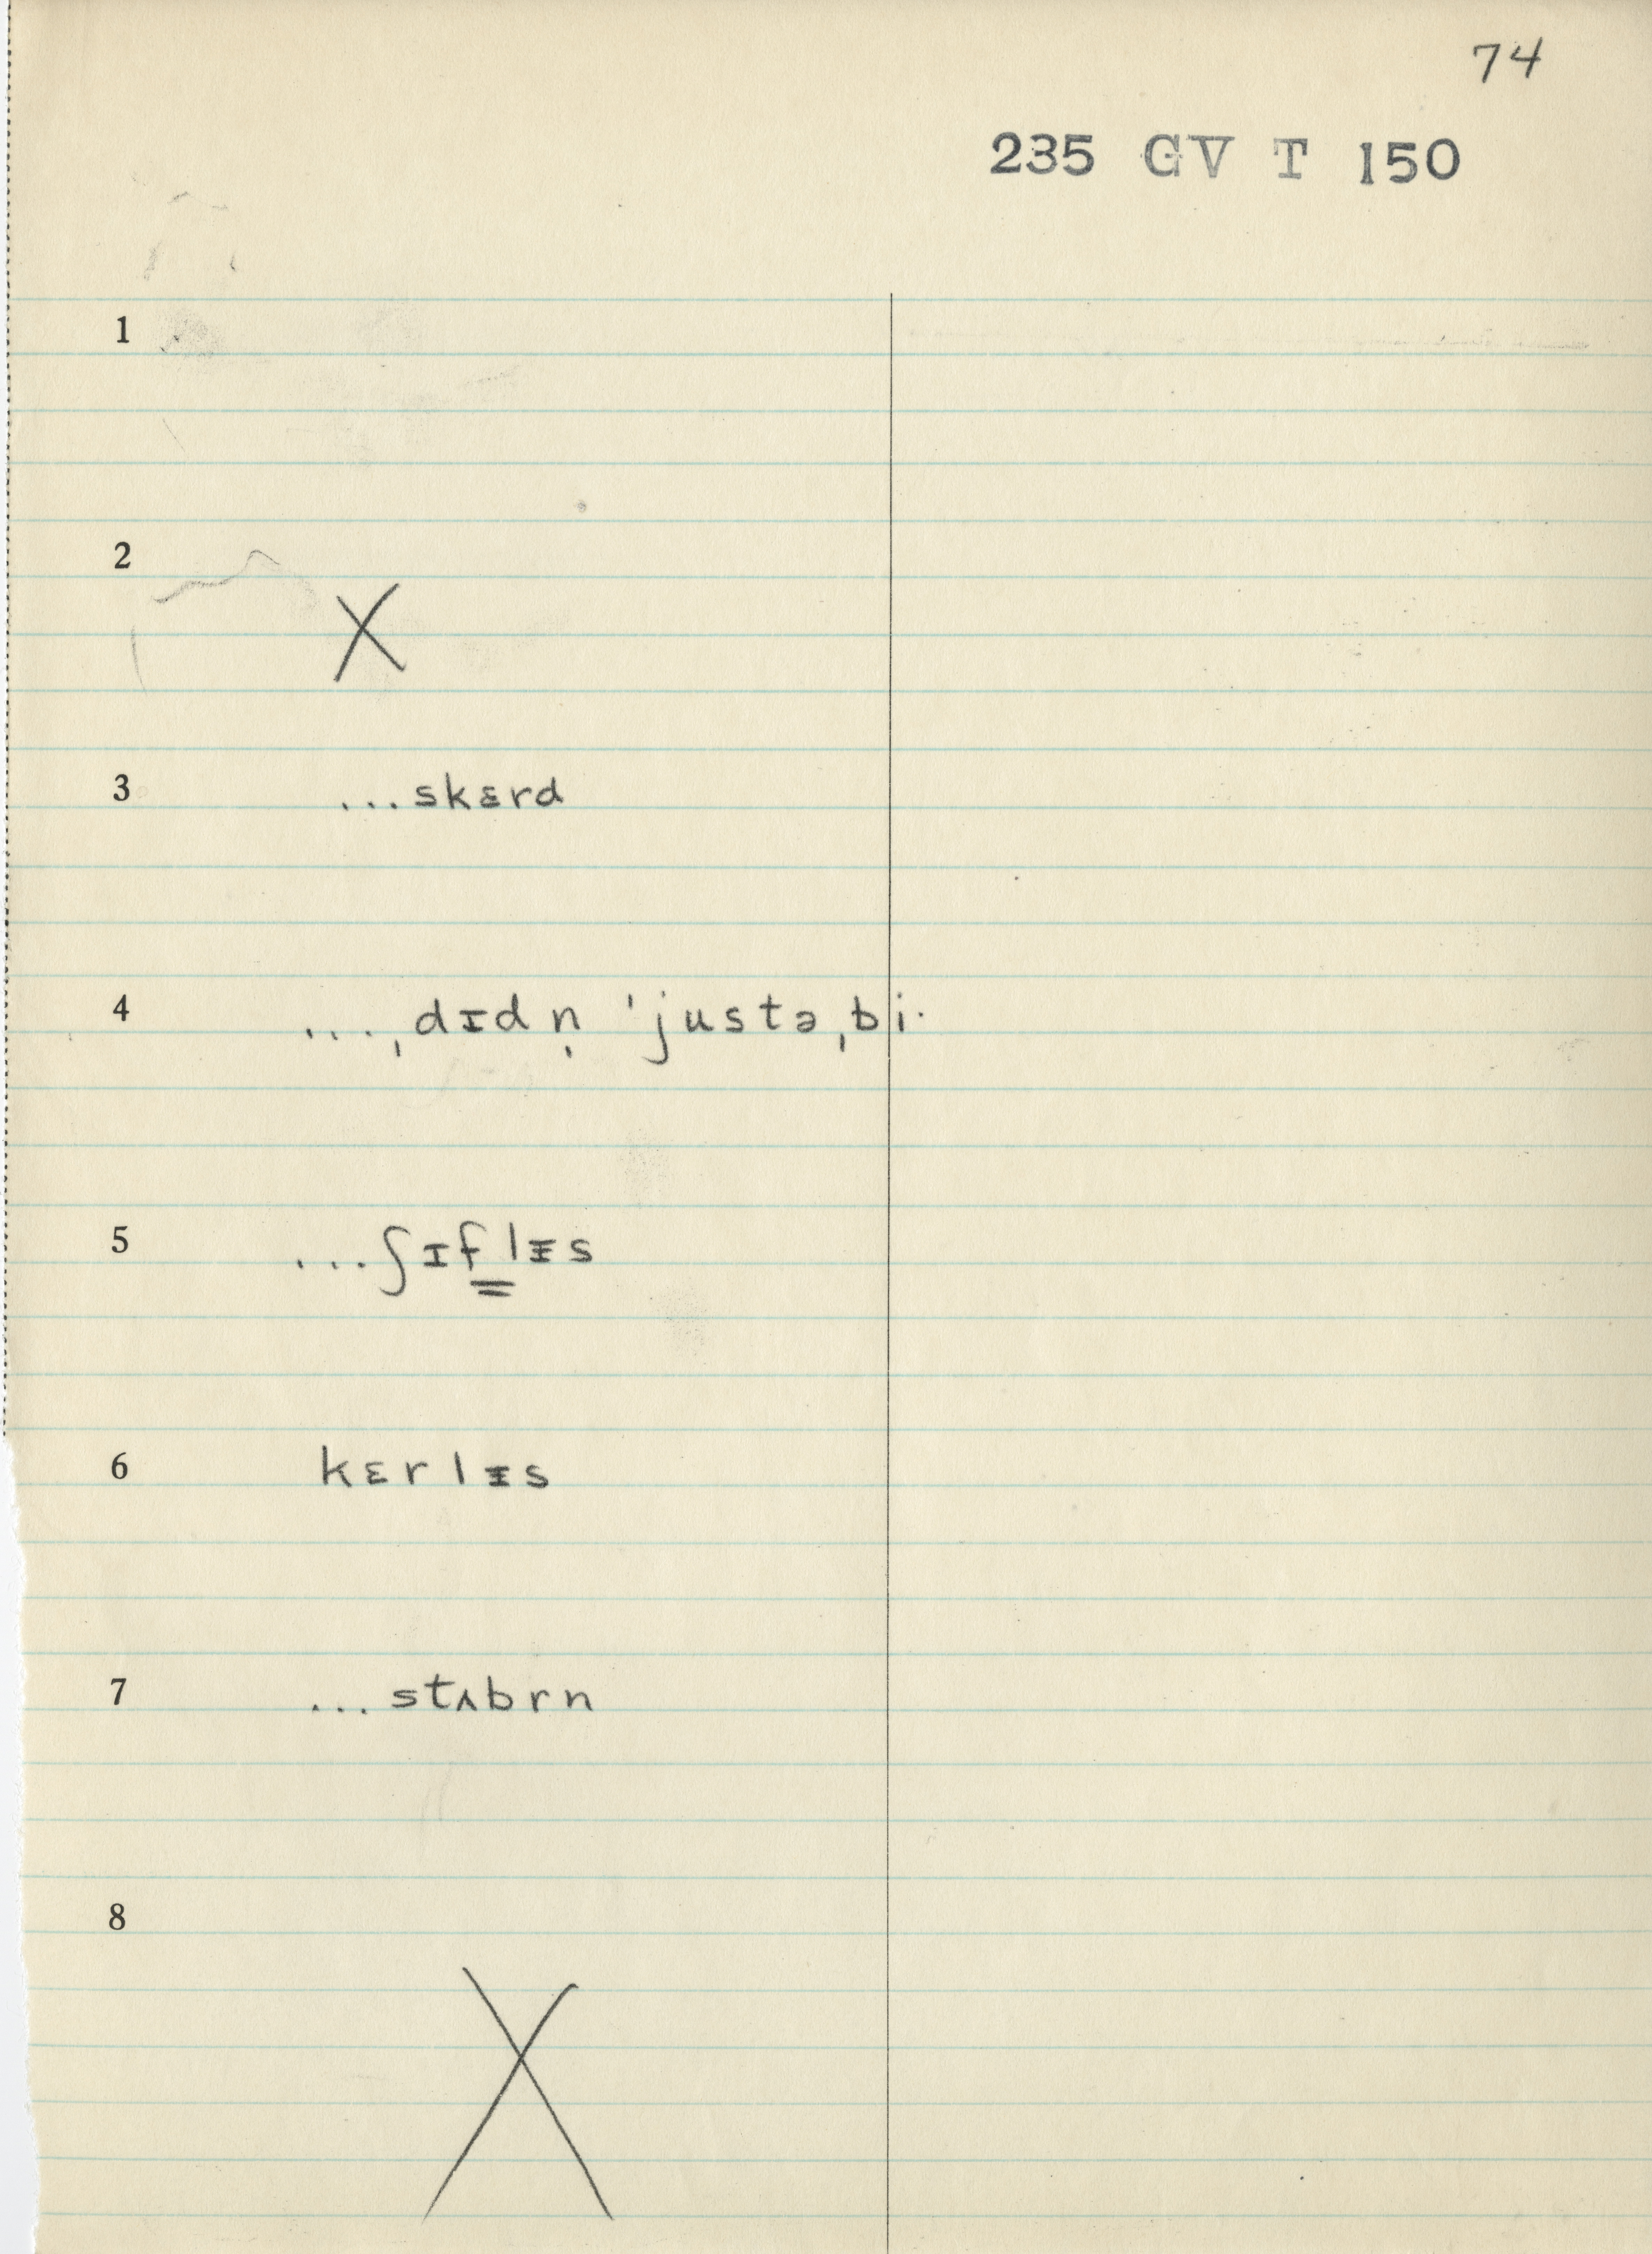 74
235 GV T 150
1
2
X
3 ...skɛrd
4 ...ˌdɪdn̩ ˈjustəˌbi·
5 ...ʃɪf̳lᵻs
6 kɛrlᵻs
7 ...stʌbrn
8
X